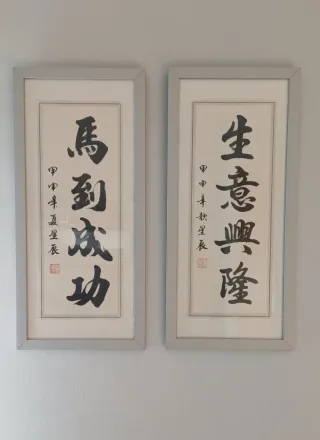 生意興隆
甲申年秋星辰
馬到成功
甲申年夏星辰